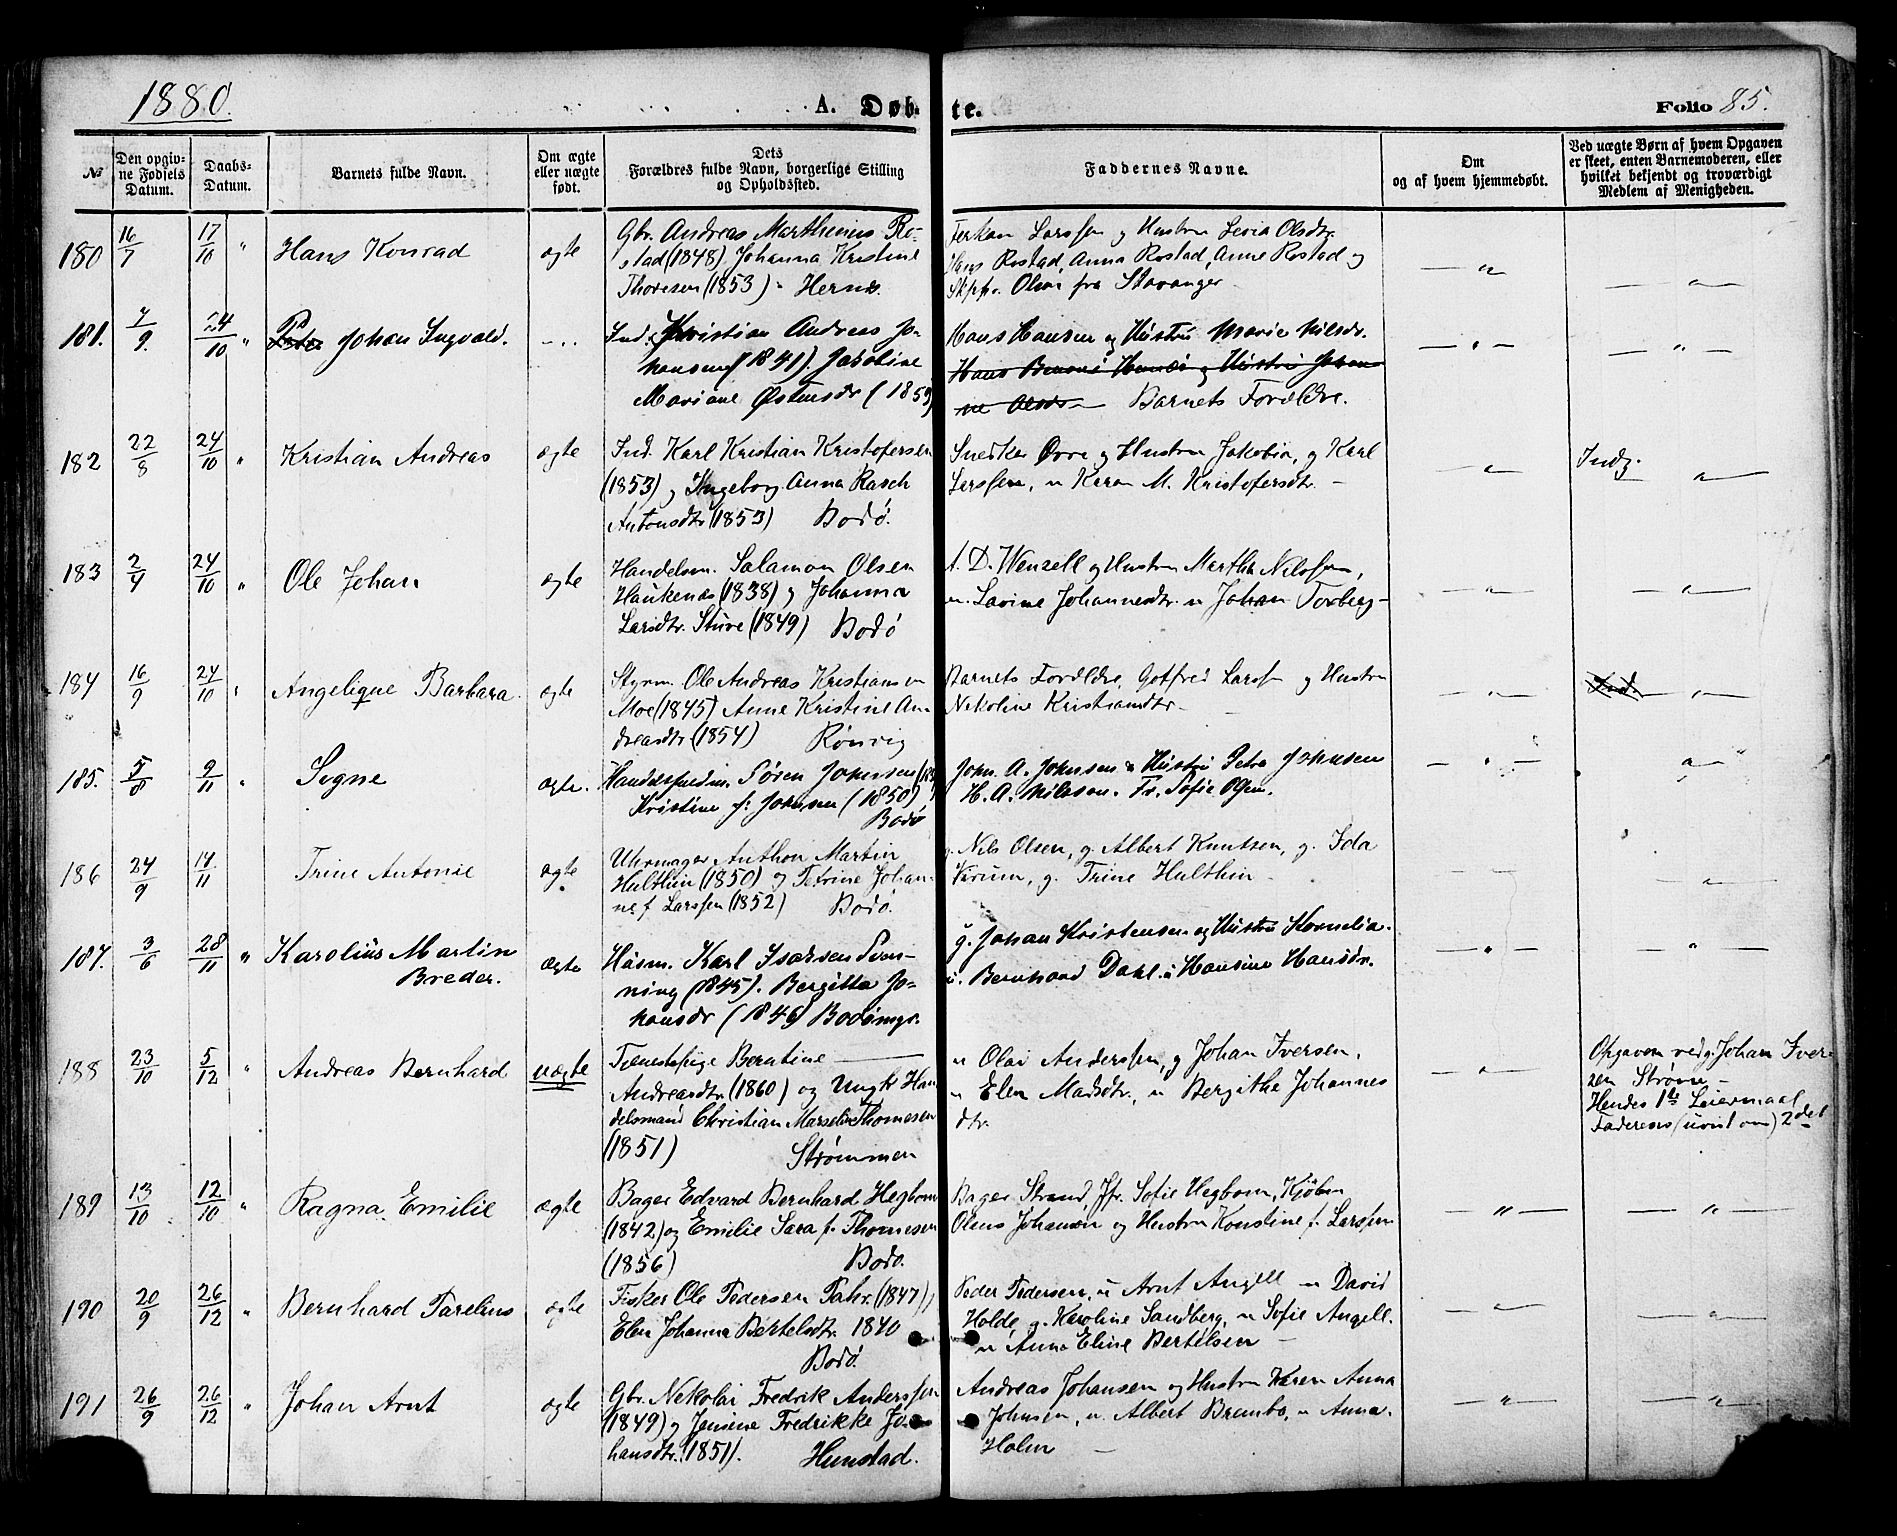 1880.
A. Døb-
te.
Folio 85.
№
Den opgiv-
ne Fødsels
Datum.
Daabs-
Datum.
Barnets fulde Navn.
Om ægte
eller uægte
født.
Dets
Forældres fulde Navn, borgerlige Stilling
og Opholdssted.
Faddernes Navne.
Om
og af hvem hjemmedøbt.
Ved uægte Børn af hvem Opgaven
er skeet, enten Barnemoderen, eller
hvilket bekjendt og troværdigt
Medlem af Menigheden.
180 16/7 17/10 " Hans Konrad ægte
Gbr. Andreas Marthinius Ro-
stad (1848), Johanna Kristine
Thoresen (1853) - Hernes.
Larssen og Hustru Olsdtr.
Hans Rostad, Anna Rostad, Anne Rostad og
Skppr. Olsen fra Stavanger
181. 7/9. 24/10 " Johan Ingvald. - . .
Ind. Kristian Andreas Jo-
hansen (1841). Jakobine
Mariane Østensdr (1853)
Hans Hansen og Hustru Marie Nilsdr.
Barnets Forældre.
182 22/8 24/10 " Kristian Andreas ægte
Ind. Karl Kristian Kristofersen
(1853) og Ingeborg Anna Rasch
Antonsdtr (1853) Bodø.
Snedker Øvre og Hustru Jakobin, og Karl
Larssen, u Karen M. Kristofersdtr. -
Indg.
183 2/4 24/10 " Ole Johan ægte
Handelsm. Salamon Olsen
Haukenæs (1838) og Johanna
Larsdtr. Sture (1849) Bodø
D. Wenzell og Hustru Martha Nilssen,
u. Lavine Johannesdtr. u Johan Torberg-
184 16/9 24/10 " Angelique Barbara. ægte
Styrm. Ole Andreas Kristiansen
Moe (1845) Anne Kristine An-
dreasdtr (1854) Rønvig
Barnets Forældre, Gotfred Larssen og Hustru
Nekoline Kristiansdtr.
185. 5/8 9/11 " Signe ægte.
Søren Johnsen
Kristine f: Johnsen (1850)
Bodø
John. A. Johnsen & Hustru Petra Johnsen
H. A. Nilsson. Fr. Sofie Olsen.
186 24/9 14/11 Trine Antonie ægte
Uhrmager Anthon Martin
Hulthin (1850) og Petrine Johan-
ne f Larssen (1852) Bodø.
g. Nils Olsen, g. Albert Knutsen, g. Ida
Virum, g. Trine Hulthin
187. 3/6 28/11 " Karolius Martin
Breder. ægte
Husm. Karl Ivarsen Sven-
ning (1845). Bergitta Jo-
hansdr (1846) Bodømgr.
g. Johan Kristensen og Hustru Kornelia.
u. Bernhard Dahl. u Hansine Hansdr.
188 23/10 5/12 " Andreas Bernhard uægte
Tjenestepige Berntine
Andreasdtr. (1860) og Ungk Han
delsmand Christian Marselius Thomesen
(1851) Strømmen
u Olai Anderssen, g Johan Iversen,
u Elen Madsdtr., u Bergithe Johannes
dtr.
Opgaven ved g. Johan Iver-
sen Strøme -
Hendes 1te Leiermaal
Faderens (uvist om) 2det
189 13/10 12/10 " Ragna Emilie ægte
Bager Edvard Bernhard Hegbom
(1842) og Emilie Sara f. Thomesen
(1856) Bodø.
Bager Strand, Jfr. Sofie Hegbom, Kjøbm
Olaus Johansen og Hustru Konstine f. Larssen
190 20/9 26/12 " Bernhard Parelius ægte
Fisker Ole Pedersen (1847),
Elen Johanna Bertelsdtr. 1840
Bodø.
Peder Pedersen, u Arnt Angell u David
Holde, g. Karoline Sandberg, u Sofie Angell.
u Anna Eline Bertelsen -
191 26/9 26/12 " Johan Arnt ægte
Gbr. Nekolai Fredrik Anderssen
(1849) og Jensine Fredrikke Jo-
hansdtr. (1851). Hunstad.
Andreas Johansen og Hustru Karen Anna
Johnsen, u. Albert Brembo, u Anna
Holm -